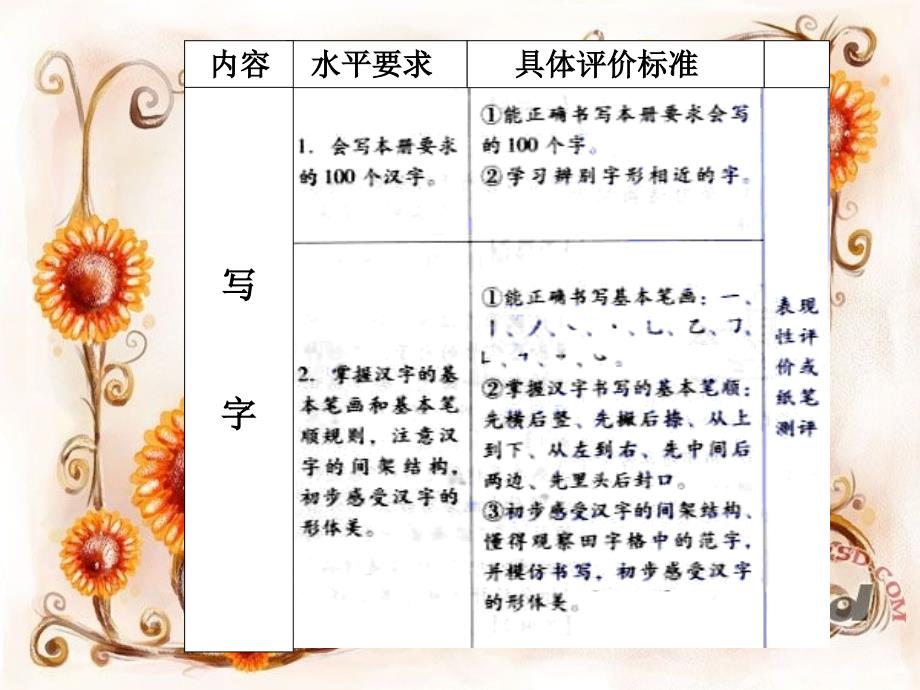 内容 水平要求 具体评价标准
写
字
1. 会写本册要求
的100个汉字。
①能正确书写本册要求会写
的100个字。
②学习辨别字形相近的字。
2. 掌握汉字的基
本笔画和基本笔
顺规则，注意汉
字的间架结构，
初步感受汉字的
形体美。
①能正确书写基本笔画：一、
丨、丿、
②掌握汉字书写的基本笔顺：
先横后竖、先撇后捺、从上
到下、从左到右、先中间后
两边、先里头后封口。
③初步感受汉字的间架结构、
懂得观察田字格中的范字，
并模仿书写，初步感受汉字
的形体美。
表现
性评
价或
纸笔
测评
SD.COM